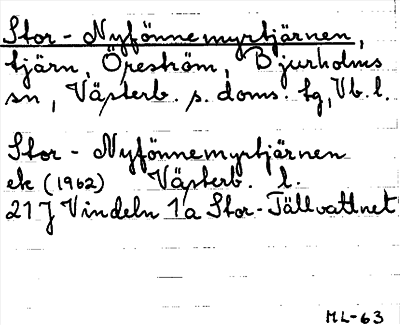 Stor - Nyfönnemyrtjärnen,
tjärn, Öreström, Bjurholms
sn, Västerb. s. doms. tg, Vb. l.
Stor - Nyfönnemyrtjärnen
ek (1962) Västerb. l.
21 J Vindeln 1a Stor-Tällvattnet
ML-63